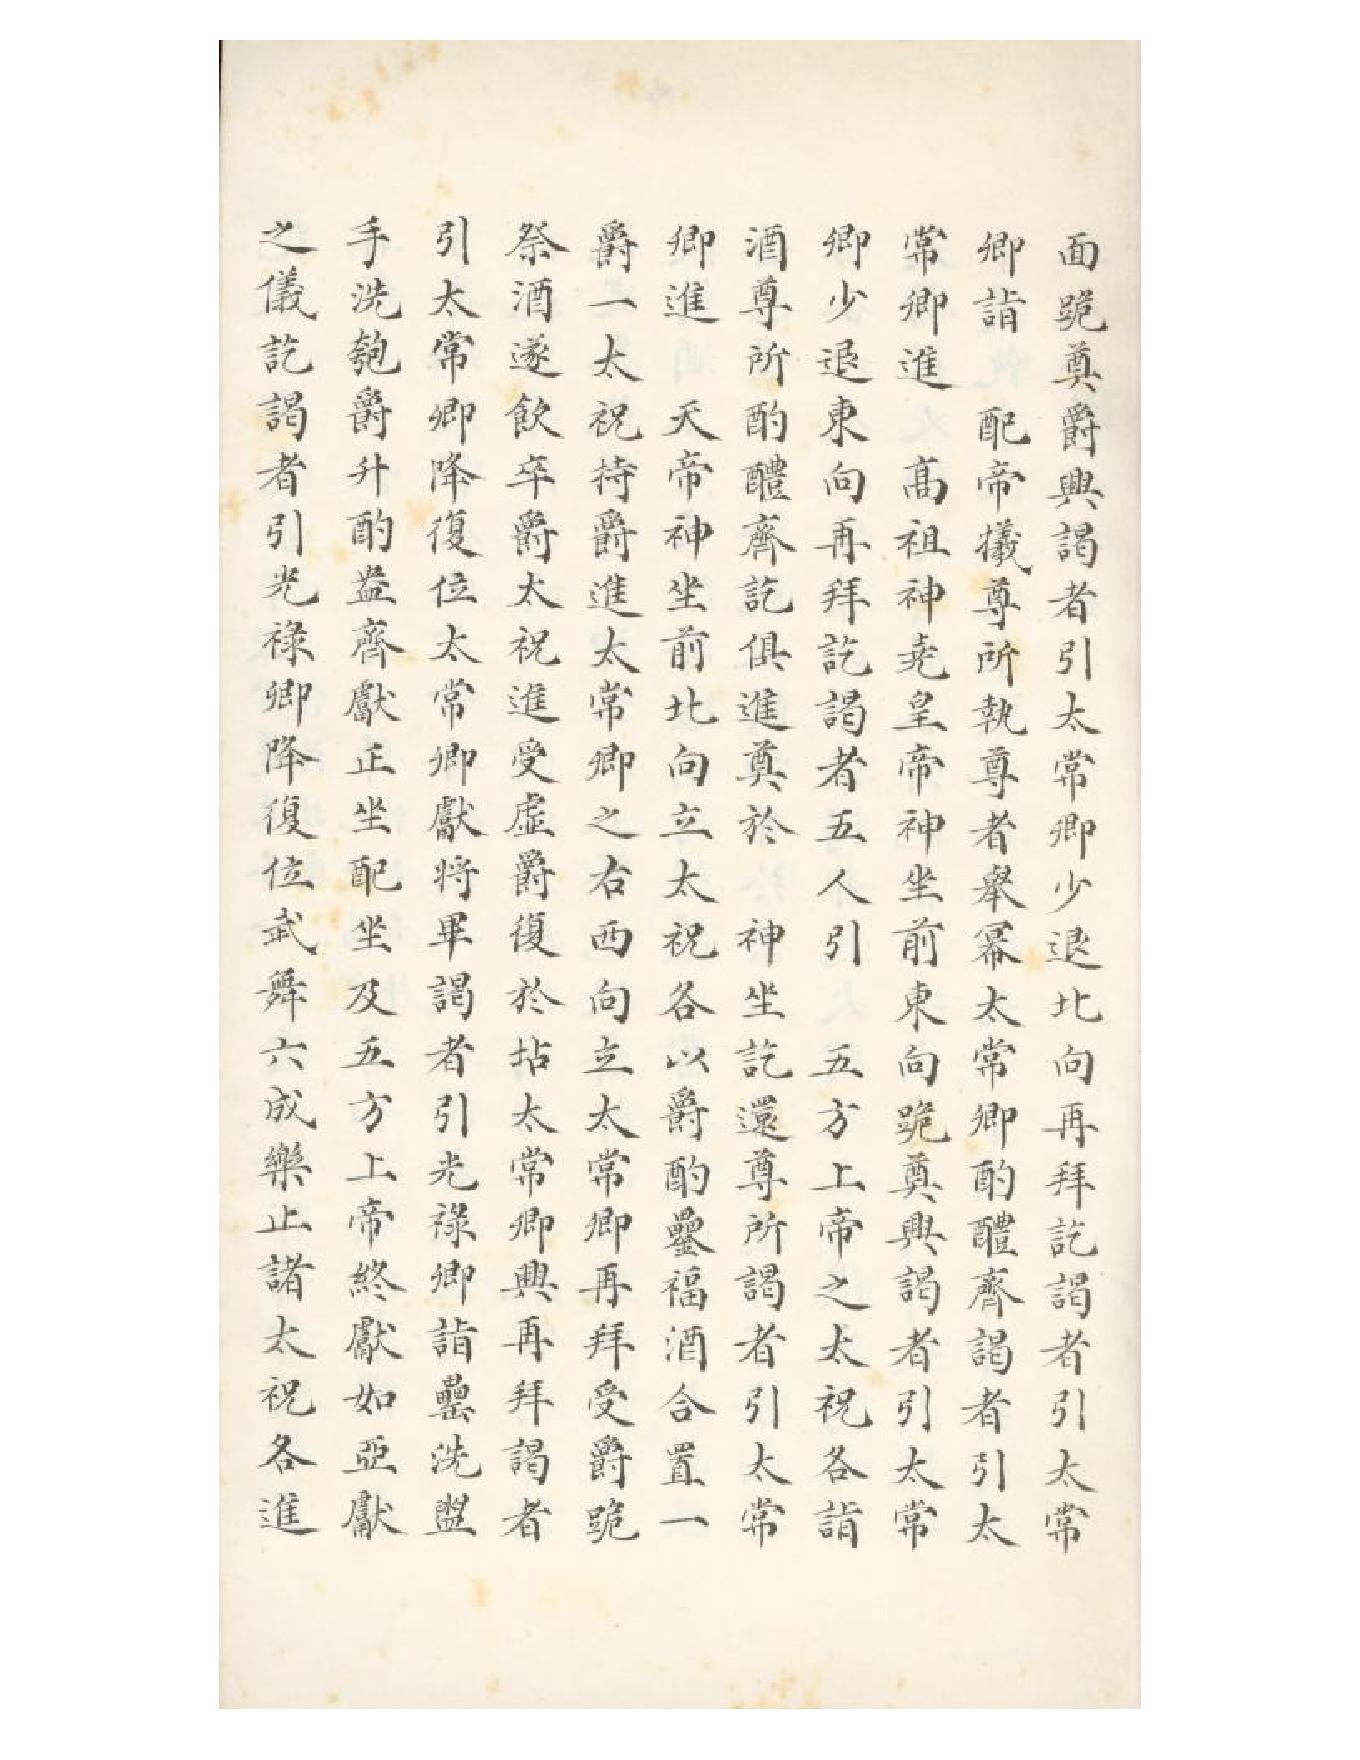 面跪奠爵興謁者引太常卿少退北向再拜訖謁者引太常
卿詣　配帝犧尊所執尊者舉冪太常卿酌醴齊謁者引太
常卿進　高祖神堯皇帝神坐前東向跪奠興謁者引太常
卿少退東向再拜訖謁者五人引　五方上帝之太祝各詣
酒尊所酌醴齊訖俱進奠於　神坐訖還尊所謁者引太常
卿進　天帝神坐前北向立太祝各以爵酌罍福酒合置一
爵一太祝持爵進太常卿之右西向立太常卿再拜受爵跪
祭酒遂飲卒爵太祝進受虛爵復於坫太常卿興再拜謁者
引太常卿降復位太常卿獻將畢謁者引光祿卿詣罍洗盥
手洗匏爵升酌盎齊獻正坐配坐及五方上帝終獻如亞獻
之儀訖謁者引光祿卿降復位武舞六成樂止諸太祝各進